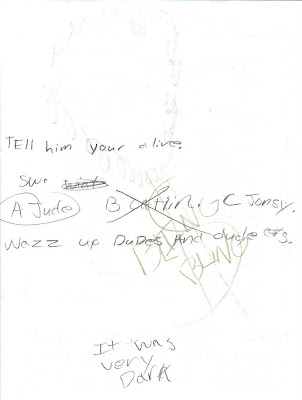 TELL him your alive.
A Jude B C Jonsy.
Wazz up DuDes And dude
BLING
BLING
It was
very
Dark